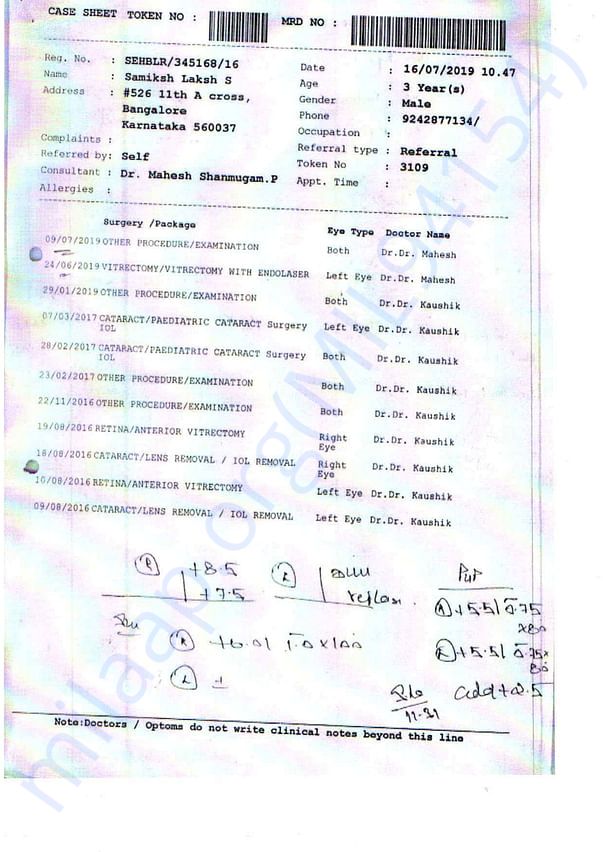 CASE SHEET TOKEN NO : MRD NO :
Reg. No. : SEHBLR/345168/16
Date : 16/07/2019 10.47
Name : Samiksh Laksh S
Age : 3 Year(s)
Address : #526 11th A cross,
Gender : Male
Bangalore
Phone : 9242877134/
Karnataka 560037
Occupation :
Complaints :
Referral type : Referral
Referred by: Self
Token No : 3109
Consultant : Dr. Mahesh Shanmugam.P
Appt. Time :
Allergies :
Surgery /Package Eye Type Doctor Name
09/07/2019 OTHER PROCEDURE/EXAMINATION Both Dr.Dr. Mahesh
24/06/2019 VITRECTOMY/VITRECTOMY WITH ENDOLASER Left Eye Dr.Dr. Mahesh
29/01/2019 OTHER PROCEDURE/EXAMINATION Both Dr.Dr. Kaushik
07/03/2017 CATARACT/PAEDIATRIC CATARACT Surgery Left Eye Dr.Dr. Kaushik
IOL
28/02/2017 CATARACT/PAEDIATRIC CATARACT Surgery Both Dr.Dr. Kaushik
IOL
23/02/2017 OTHER PROCEDURE/EXAMINATION Both Dr.Dr. Kaushik
22/11/2016 OTHER PROCEDURE/EXAMINATION Both Dr.Dr. Kaushik
19/08/2016 RETINA/ANTERIOR VITRECTOMY Right Dr.Dr. Kaushik
Eye
18/08/2016 CATARACT/LENS REMOVAL / IOL REMOVAL Right Dr.Dr. Kaushik
Eye
10/08/2016 RETINA/ANTERIOR VITRECTOMY Left Eye Dr.Dr. Kaushik
09/08/2016 CATARACT/LENS REMOVAL / IOL REMOVAL Left Eye Dr.Dr. Kaushik
R +8.5 L dull PGP
+7.5 reflex
R +5.5/ 0.75
x80
R +6.0/ 1.0 x 100
L +5.5/ 0.75 x
80
L
add +2.5
11.31
Note:Doctors / Optoms do not write clinical notes beyond this line
milaap.org(MIL94154)